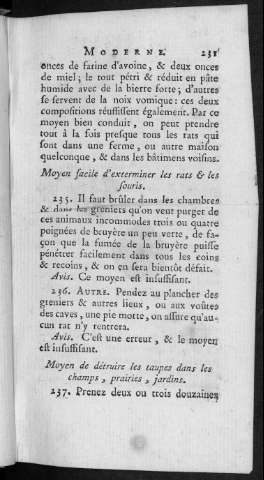 MODERNE. 231
onces de farine d'avoine, & deux onces
de miel; le tout pétri & réduit en pâte
humide avec de la bierre forte; d'autres
se servent de la noix vomique: ces deux
compositions réussissent également. Par ce
moyen bien conduit, on peut prendre
tout à la fois presque tous les rats qui
sont dans une ferme, ou autre maison
quelconque, & dans les bâtimens voisins.
Moyen facile d'exterminer les rats & les
souris.
235. Il faut brûler dans les chambres
& dans les greniers qu'on veut purger de
ces animaux incommodes trois ou quatre
poignées de bruyère un peu verte, de fa-
çon que la fumée de la bruyère puisse
pénétrer facilement dans tous les coins
& recoins, & on en sera bientôt défait.
Avis. Ce moyen est insuffisant.
236. AUTRE. Pendez au plancher des
greniers & autres lieux, ou aux voûtes
des caves, une pie morte, on assure qu'au-
cun rat n'y rentrera.
Avis. C'est une erreur, & le moyen
est insuffisant.
Moyen de détruire les taupes dans les
champs, prairies, jardins.
237. Prenez deux ou trois douzaines